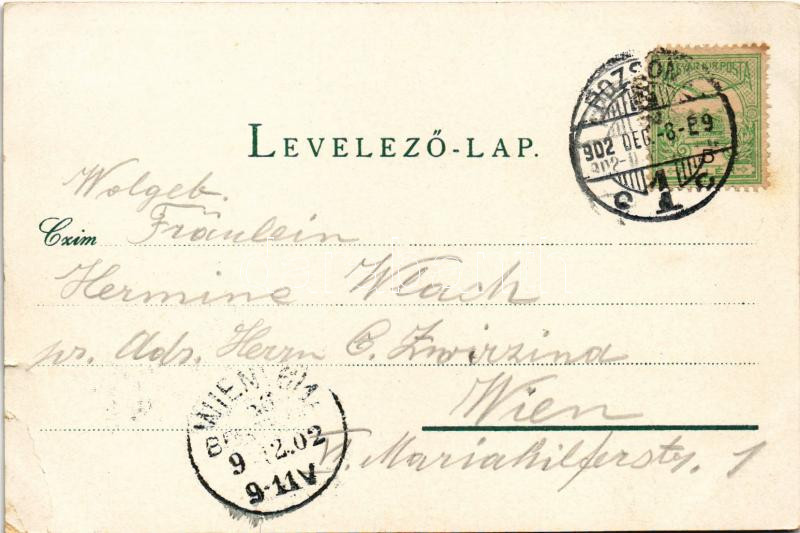 LEVELEZŐ-LAP.
MAGYAR KIR. POSTA
POZSONY
902 DEC. -8-E9
Wolgeb.
Czim Fräulein
Hermine Wlach
pr. Adr. Herrn C. Zwirzina
Wien
VI. Mariahilferstr. 1
WIEN
9 12.02
9-11V